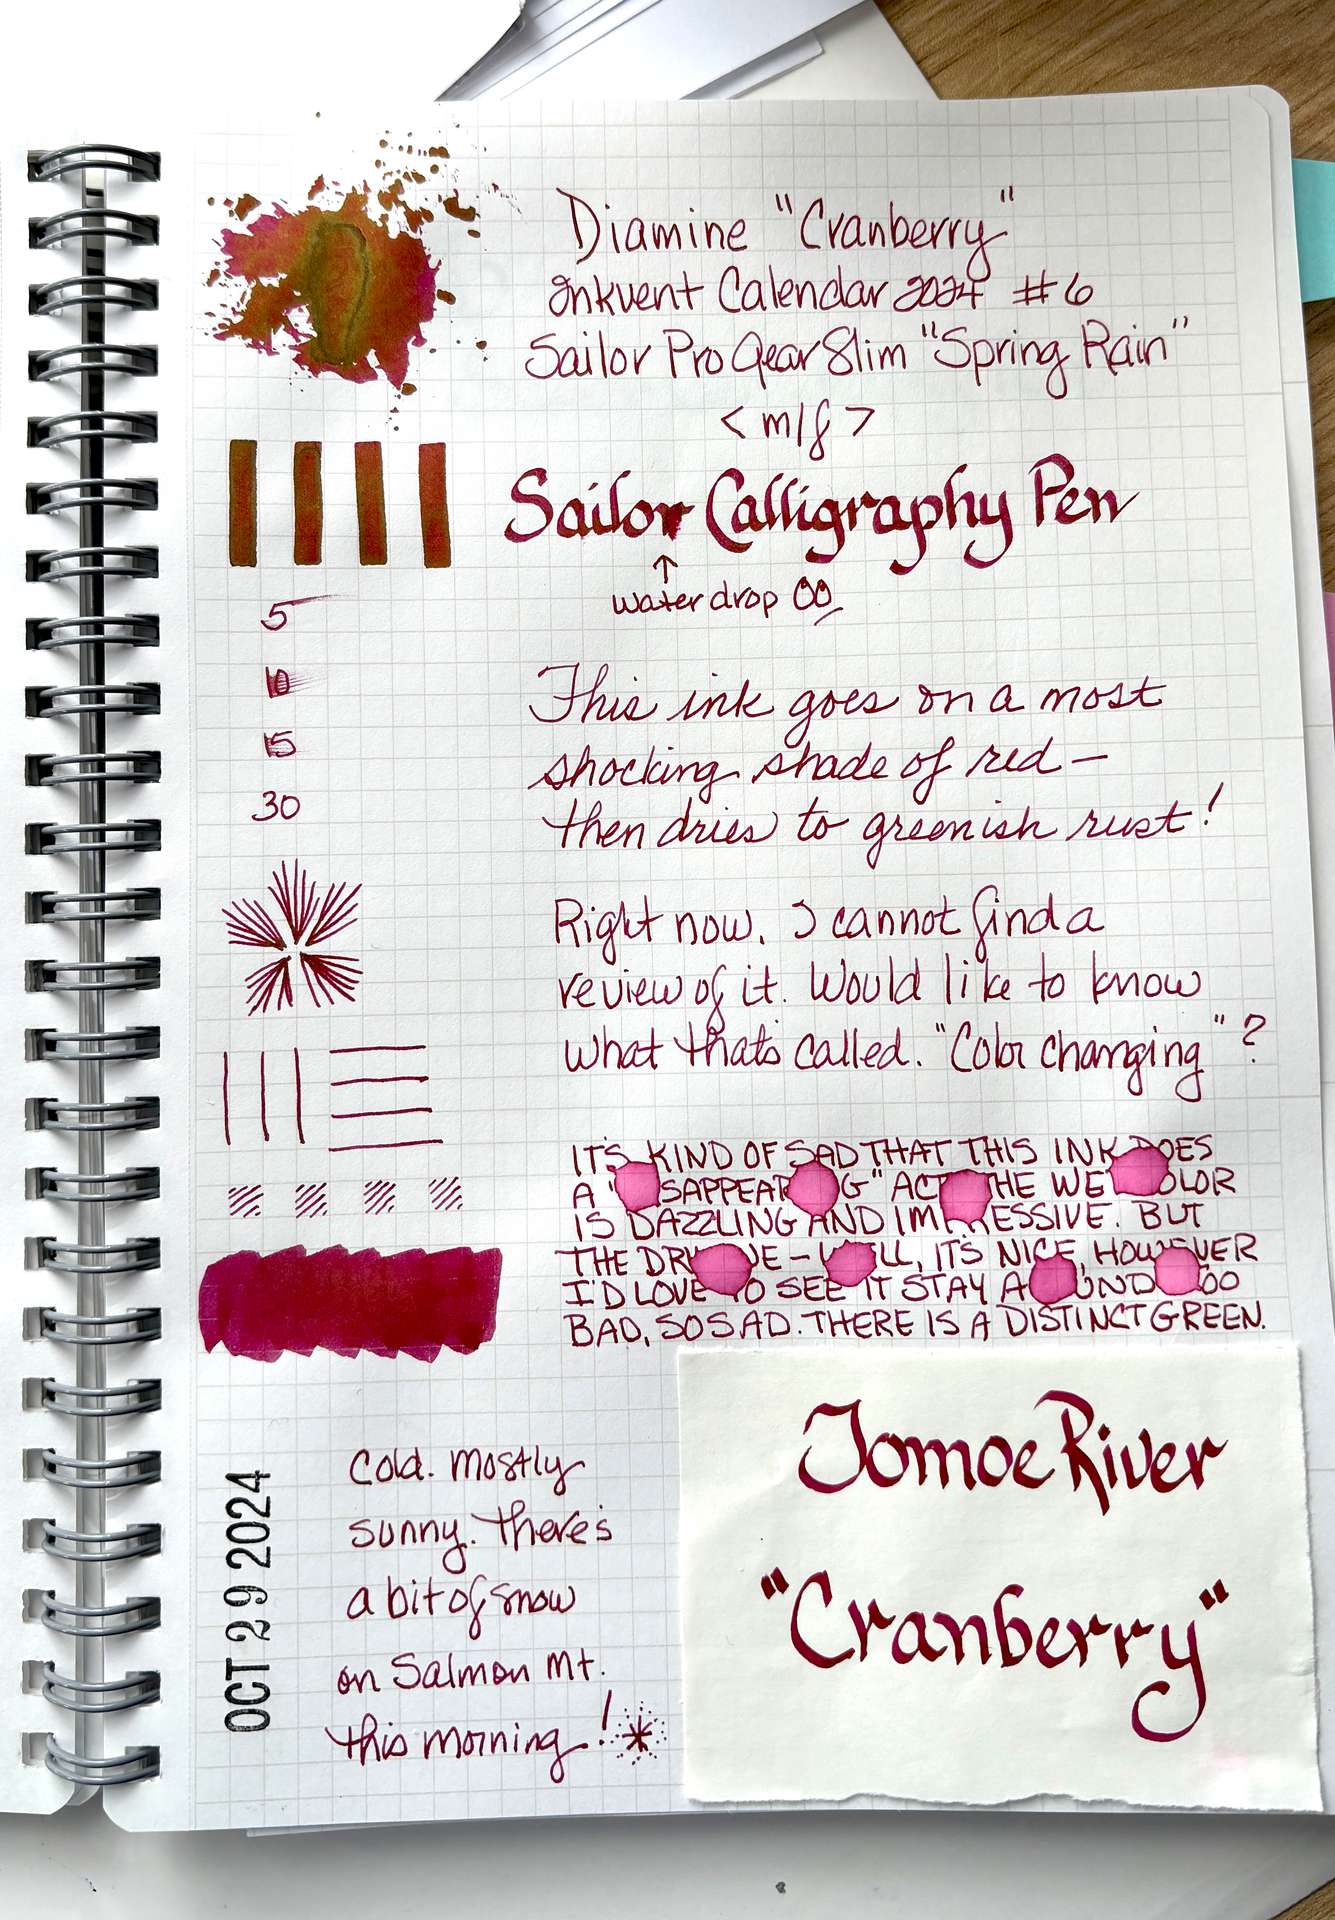 Diamine "Cranberry"
Inkvent Calendar 2024 #6
Sailor Pro Gear Slim "Spring Rain"
<m/f>
Sailor Calligraphy Pen
↑
water drop
5
10
15
30
This ink goes on a most
shocking shade of red —
then dries to greenish rust!
Right now, I cannot find a
review of it. Would like to know
what thats called. "Color changing"?
IT'S KIND OF SAD THAT THIS INK DOES
A " SAPPEAR G" ACT HE WE OLOR
IS DAZZLING AND IM ESSIVE. BUT
THE DRY E – LL, IT'S NICE, HOWEVER
I'D LOVE TO SEE IT STAY A UND OO
BAD, SO SAD. THERE IS A DISTINCT GREEN.
Cold. Mostly
sunny. There's
a bit of snow
on Salmon Mt.
this morning!
OCT 29 2024
Tomoe River
"Cranberry"